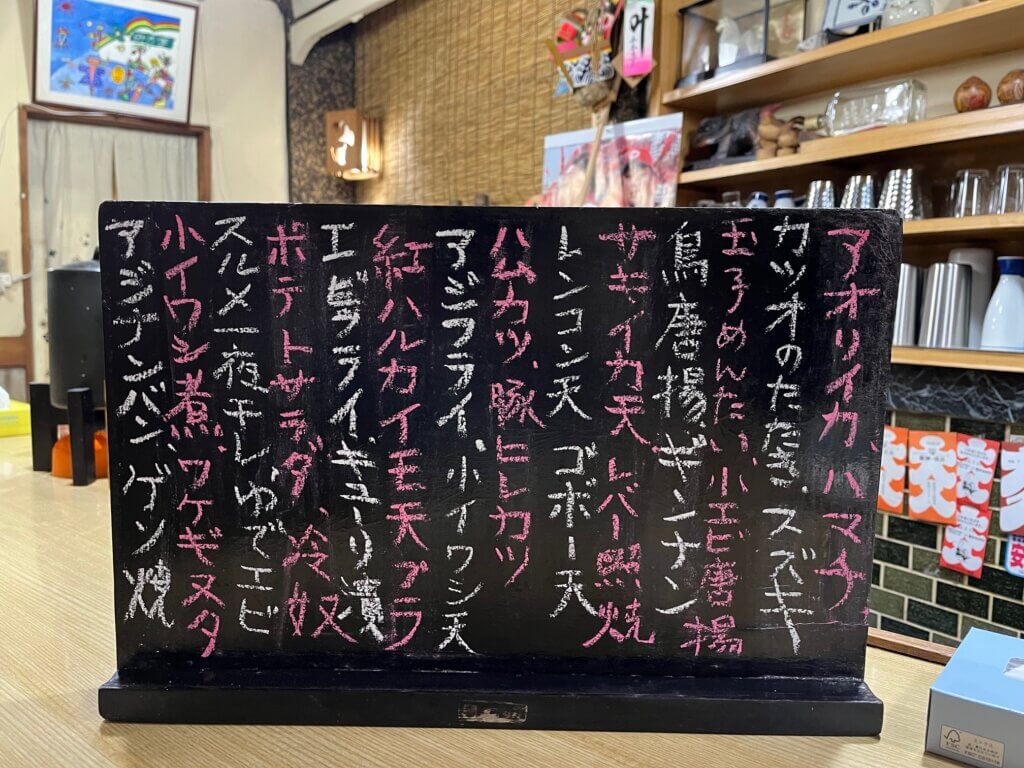 アオリイカ、ハマチ、
カツオのたたき、スズキ
玉子めんたい小エビ唐揚
鳥唐揚、ギンナン
サキイカ天、レバー照焼
レンコン天 ゴボー天
ハムカツ、豚ヒレカツ
アジフライ 小イワシ天
紅ハルカイモ天プラ
エビフライ、キューリ漬
ポテトサラダ、冷奴
スルメ一夜干し、ゆでエビ
小イワシ煮、ワケギヌタ
アジナンバン、ゲソ焼
叶
FSC